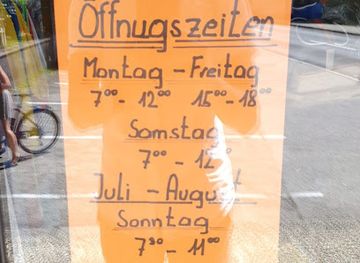 Öffnugszeiten
Montag - Freitag
7⁰⁰ - 12⁰⁰ 15⁰⁰ - 18⁰⁰
Samstag
7⁰⁰ - 12⁰⁰
Juli - August
Sonntag
7³⁰ - 11⁰⁰